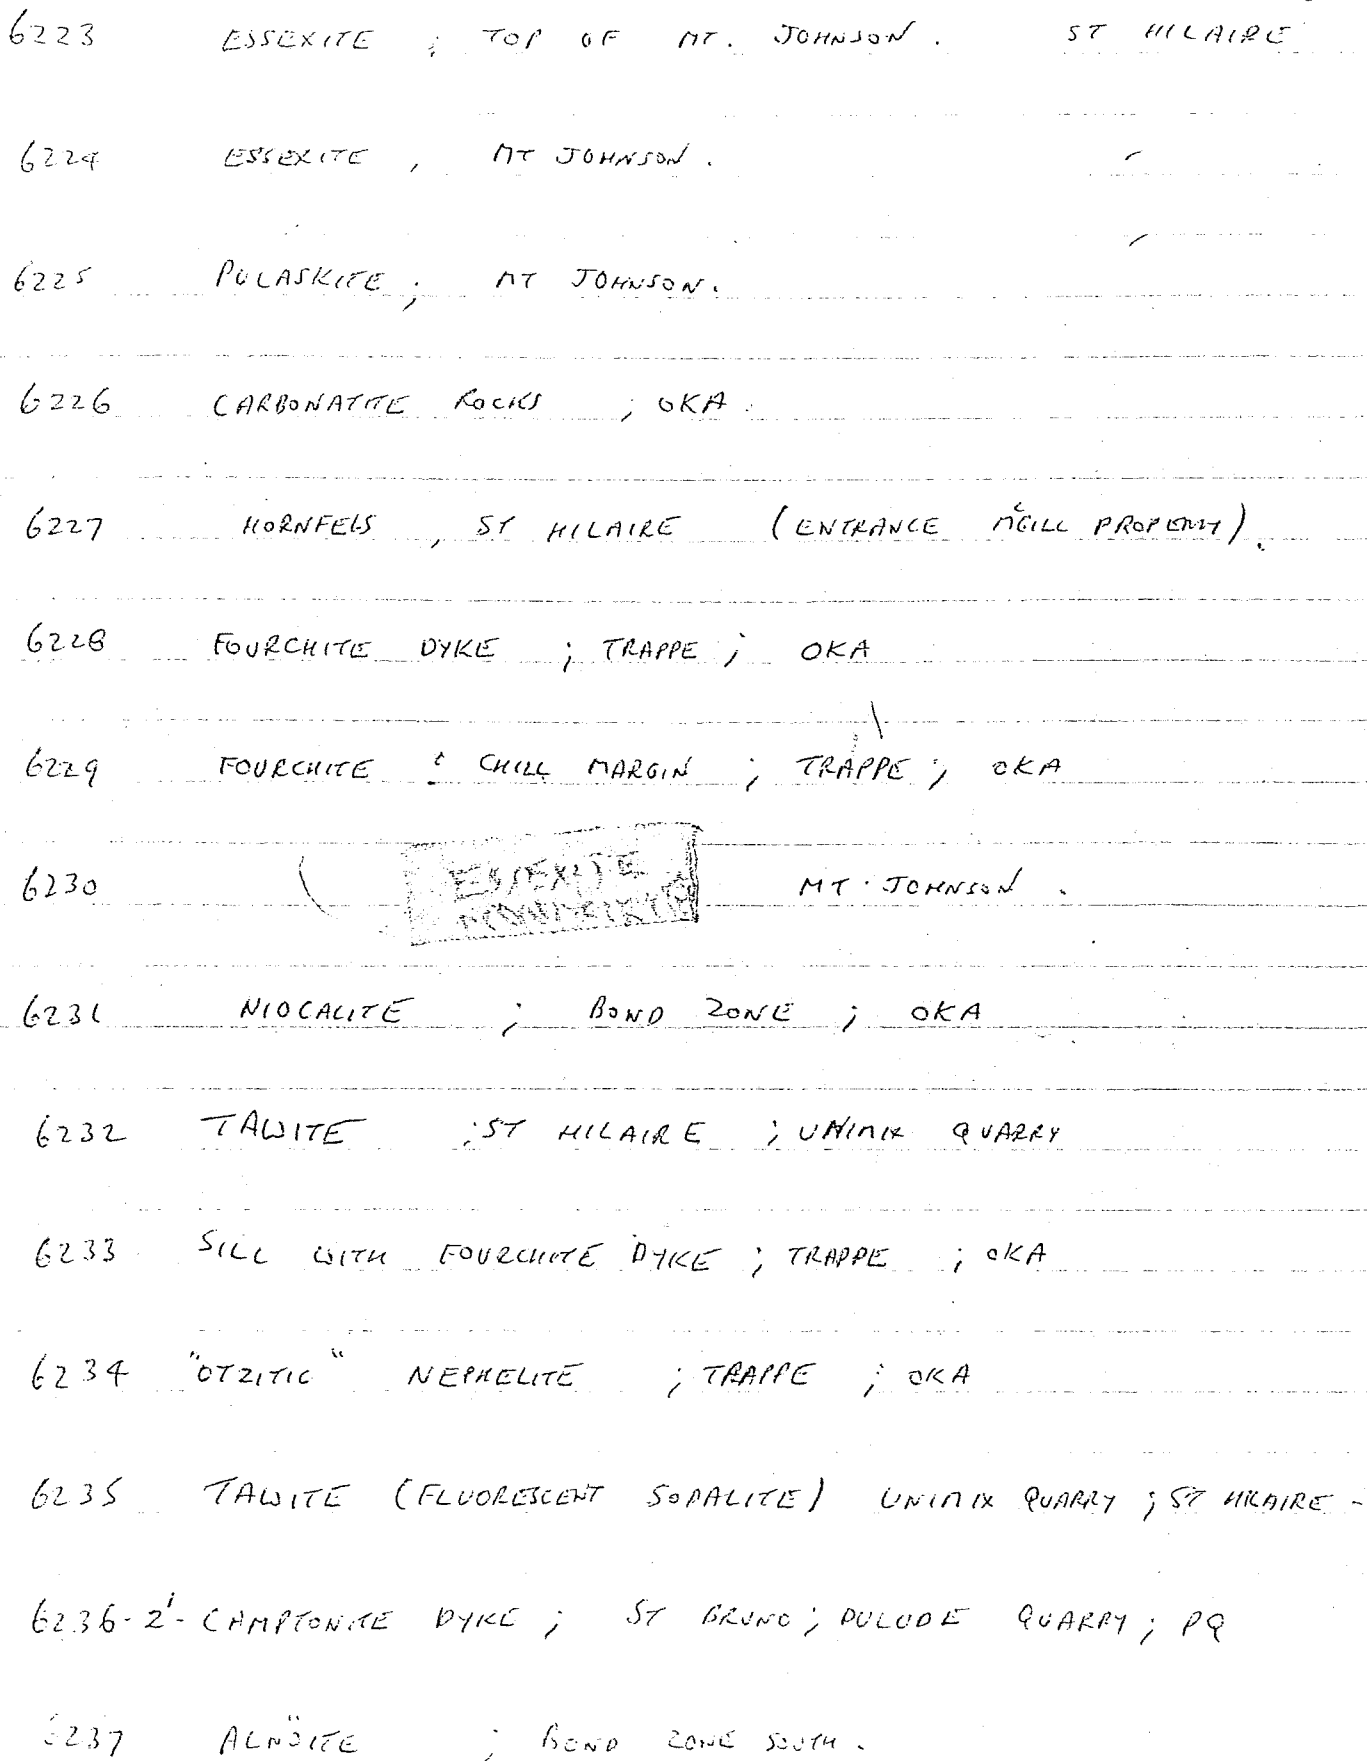 6223 ESSEXITE ; TOP OF MT. JOHNSON. ST HILAIRE
6224 ESSEXITE , MT JOHNSON.
6225 PULASKITE ; MT JOHNSON.
6226 CARBONATITE ROCKS ; OKA
6227 HORNFELS , ST HILAIRE (ENTRANCE McGILL PROPERTY).
6228 FOURCHITE DYKE ; TRAPPE ; OKA
6229 FOURCHITE & CHILL MARGIN ; TRAPPE ; OKA
6230 ESSEXITE MT. JOHNSON.
6231 NIOCALITE ; BOND ZONE ; OKA
6232 TAWITE ; ST HILAIRE ; UNIMIX QUARRY
6233 SILL WITH FOURCHITE DYKE ; TRAPPE ; OKA
6234 "OTZITIC" NEPHELITE ; TRAPPE ; OKA
6235 TAWITE (FLUORESCENT SODALITE) UNIMIX QUARRY ; ST HILAIRE -
6236-2'- CAMPTONITE DYKE ; ST BRUNO ; DULUDE QUARRY ; PQ
6237 ALNÖITE ; BOND ZONE SOUTH.